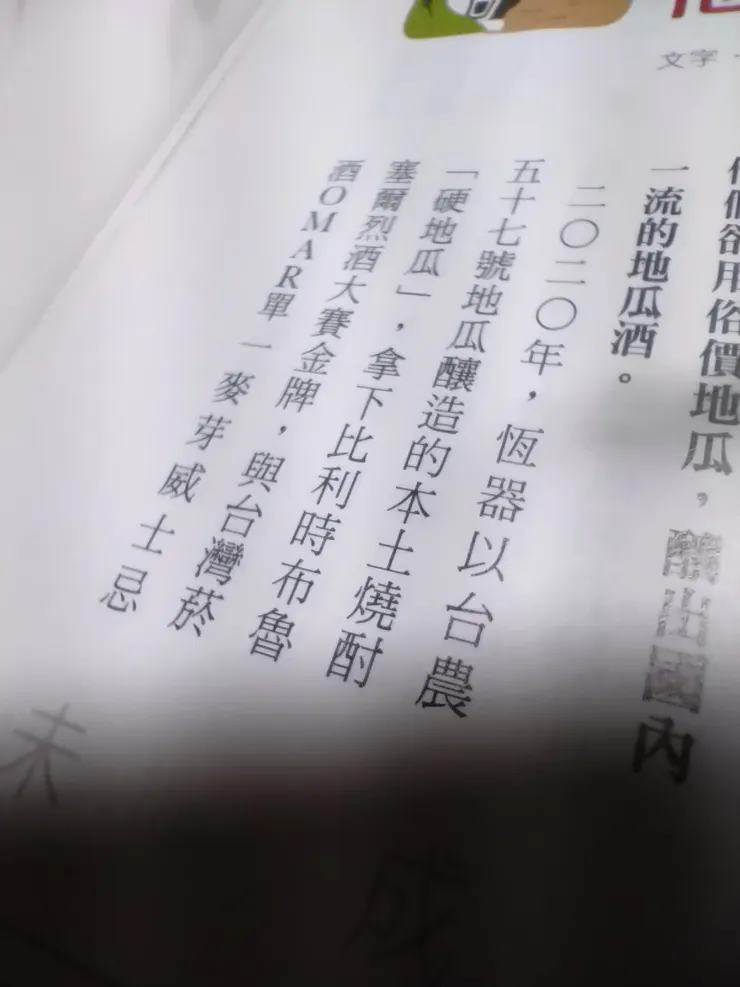 文字
用俗價地瓜，釀出國內
一流的地瓜酒。
二〇二〇年，恆器以台農
五十七號地瓜釀造的本土燒酎
「硬地瓜」，拿下比利時布魯
塞爾烈酒大賽金牌，與台灣菸
酒OMAR單一麥芽威士忌
未
成